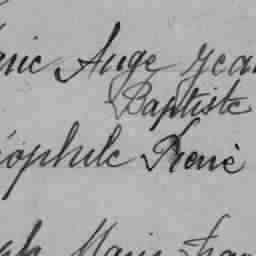 Marie Auge Jean
Baptiste
éophile René
Marie Fran